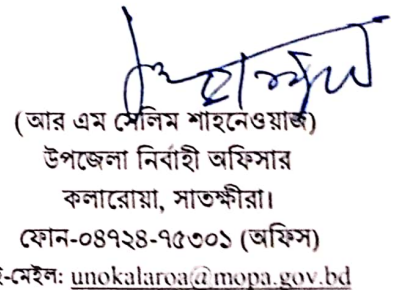 (আর এম সেলিম শাহনেওয়াজ)
উপজেলা নির্বাহী অফিসার
কলারোয়া, সাতক্ষীরা।
ফোন-০৪৭২৪-৭৫৩০১ (অফিস)
ই-মেইল: unokalaroa@mopa.gov.bd